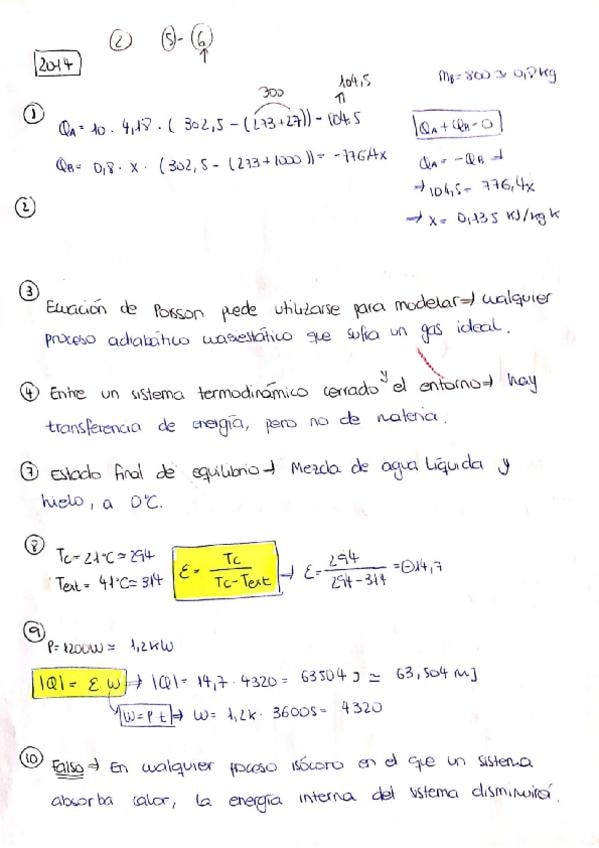 ② ⑤-⑥
2014
m_B = 800 ≃ 0,8 kg
① 300 104,5
Q_A = 10 · 4,18 · (302,5 - (273+27)) = 104,5
|Q_A + Q_B = 0|
Q_B = 0,8 · x · (302,5 - (273+1000)) = -776,4x
Q_A = -Q_B ⇒
→ 104,5 = 776,4x
→ x = 0,135 kJ/kg K
②
③ Ecuación de Poisson puede utilizarse para modelar ⇒ cualquier
proceso adiabático cuasiestático que sufra un gas ideal.
④ Entre un sistema termodinámico cerrado y el entorno ⇒ hay
transferencia de energía, pero no de materia.
⑦ Estado final de equilibrio → Mezcla de agua líquida y
hielo, a 0ºC.
⑧ Tc = 21ºC ≃ 294
Text = 41ºC ≃ 314
ε = Tc / (Tc - Text) → ε = 294 / (294 - 314) = ⊖14,7
⑨ P = 1200W ≃ 1,2 kW
|Q| = ε W → |Q| = 14,7 · 4320 = 63504 J ≃ 63,504 MJ
W = P t ⇒ W = 1,2k · 3600s = 4320
⑩ Falso ⇒ En cualquier proceso isócoro en el que un sistema
absorba calor, la energía interna del sistema disminuirá.